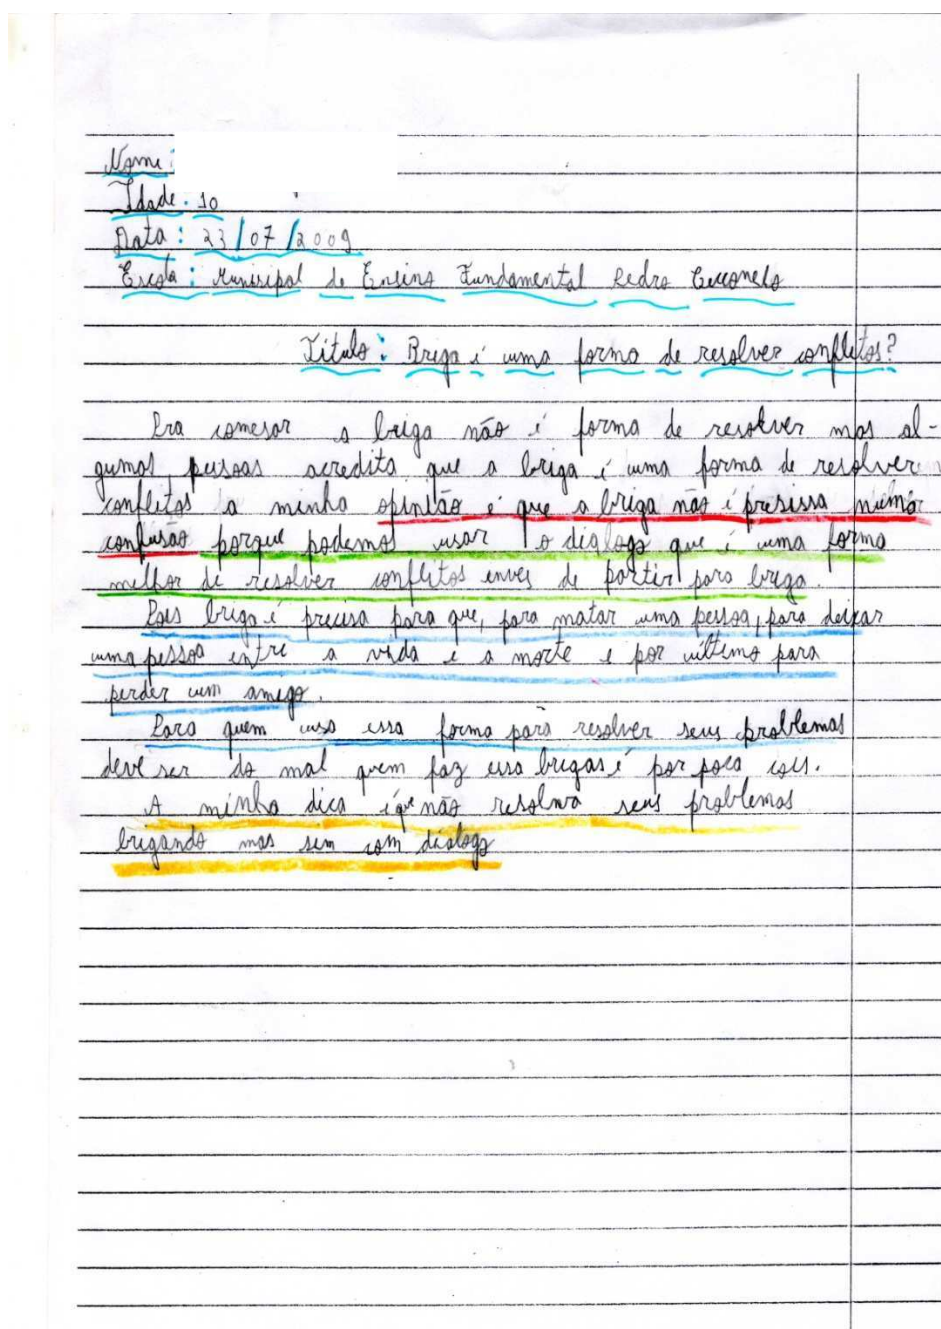 Nome:
Idade: 10
Data: 23/07/2009
Escola: Munisipal de Ensino Fundamental Pedro
Título: Briga é uma forma de resolver conflitos?
Pra comesar a briga não é forma de resolver mas al-
gumas pessoas acredita que a briga é uma forma de resolver
conflitos a minha opinião é que a briga não é presissa numa
confusão porque podemos usar o dialogo que é uma forma
melhor de resolver conflitos enves de partir para briga.
Pois briga é precisa para que, para matar uma pessoa, para deixar
uma pessoa entre a vida e a morte e por ultimo para
perder um amigo.
Para quem usa essa forma para resolver seus problemas
deve ser do mal quem faz essa brigas é por poca
A minha dica é que não resolva seus problemas
brigando mas sim com dialogo